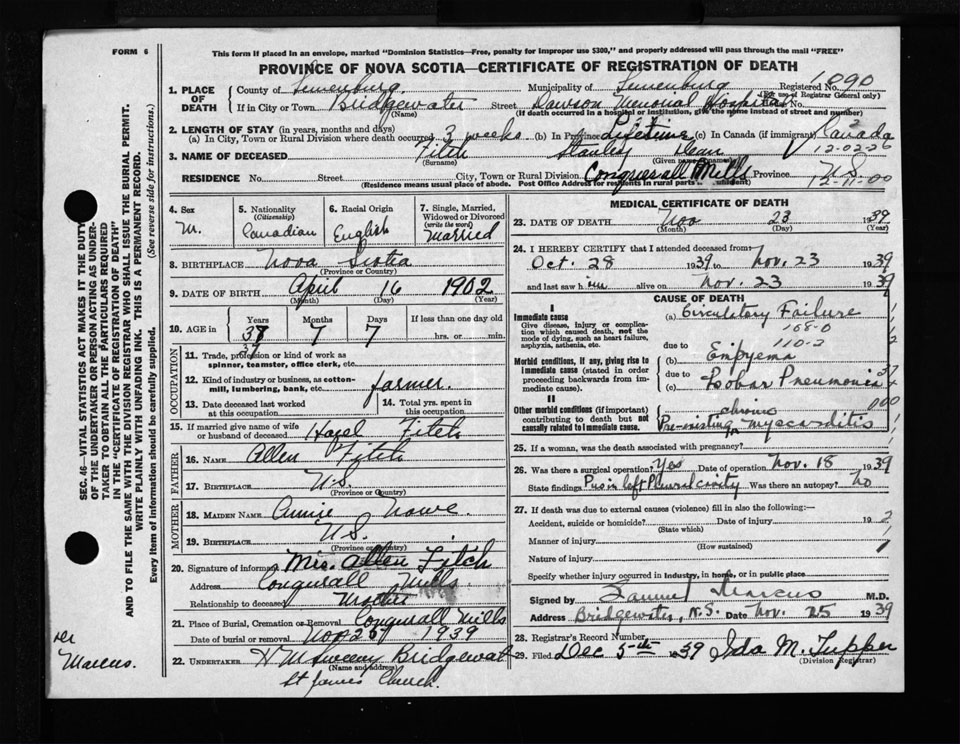 FORM 6
This form if placed in an envelope, marked "Dominion Statistics—Free, penalty for improper use $300," and properly addressed will pass through the mail "FREE"
PROVINCE OF NOVA SCOTIA—CERTIFICATE OF REGISTRATION OF DEATH
1. PLACE OF DEATH
County of Lunenburg Municipality of Lunenburg Registered No. 1090
(For use of Registrar General only)
If in City or Town Bridgewater Street Dawson Memorial Hospital No.
(Name) (If death occurred in a hospital or institution, give the name instead of street and number)
2. LENGTH OF STAY (in years, months and days)
(a) In City, Town or Rural Division where death occurred 3 weeks (b) In Province Lifetime (c) In Canada (if immigrant) Canada
12-02-26
3. NAME OF DECEASED Fitch Stanley Dean
(Surname) (Given name or names)
RESIDENCE No. Street City, Town or Rural Division Conquerall Mills Province N.S.
(Residence means usual place of abode. Post Office Address for residents in rural parts)
12-11-00
4. Sex M.
5. Nationality (Citizenship) Canadian
6. Racial Origin English
7. Single, Married, Widowed or Divorced (write the word) Married
8. BIRTHPLACE Nova Scotia
(Province or Country)
9. DATE OF BIRTH April 16 1902
(Month) (Day) (Year)
10. AGE in Years Months Days If less than one day old
37 7 7 hrs. or min.
37
OCCUPATION
11. Trade, profession or kind of work as spinner, teamster, office clerk, etc.
12. Kind of industry or business, as cotton-mill, lumbering, bank, etc. farmer.
13. Date deceased last worked at this occupation
14. Total yrs. spent in this occupation
15. If married give name of wife or husband of deceased Hazel Fitch
FATHER
16. NAME Allen Fitch
17. BIRTHPLACE N.S.
(Province or Country)
MOTHER
18. MAIDEN NAME Annie Nowe
19. BIRTHPLACE N.S.
(Province or Country)
20. Signature of informant Mrs. Allen Fitch
Address Conquerall Mills
Relationship to deceased Mother
21. Place of Burial, Cremation or Removal Conquerall Mills
Date of burial or removal Nov 25 1939
22. UNDERTAKER H M Sweeny Bridgewater
(Name and address)
St James Church.
MEDICAL CERTIFICATE OF DEATH
23. DATE OF DEATH Nov 23 1939
(Month) (Day) (Year)
24. I HEREBY CERTIFY that I attended deceased from
Oct. 28 1939 to Nov. 23 1939
and last saw him alive on Nov. 23 1939
CAUSE OF DEATH
I
Immediate cause
Give disease, injury or complication which caused death, not the mode of dying, such as heart failure, asphyxia, asthenia, etc.
(a) Circulatory Failure
168-0
due to 110-2
Morbid conditions, if any, giving rise to immediate cause (stated in order proceeding backwards from immediate cause).
(b) Empyema
due to
(c) Lobar Pneumonia
II
Other morbid conditions (if important) contributing to death but not causally related to immediate cause.
chronic
Pre-existing myocarditis
25. If a woman, was the death associated with pregnancy?
26. Was there a surgical operation? Yes Date of operation Nov. 18 1939
State findings Pus in left Pleural cavity Was there an autopsy? No
27. If death was due to external causes (violence) fill in also the following:—
Accident, suicide or homicide? Date of injury 19
(State which)
Manner of injury
(How sustained)
Nature of injury
Specify whether injury occurred in industry, in home, or in public place
Signed by Samuel Marcus M.D.
Address Bridgewater, N.S. Date Nov. 25 1939
28. Registrar's Record Number
29. Filed Dec 5th 1939 Ida M. Tupper
(Division Registrar)
SEC. 46—VITAL STATISTICS ACT MAKES IT THE DUTY
OF THE UNDERTAKER OR PERSON ACTING AS UNDER-
TAKER TO OBTAIN ALL THE PARTICULARS REQUIRED
IN THE "CERTIFICATE OF REGISTRATION OF DEATH"
AND TO FILE THE SAME WITH THE DIVISION REGISTRAR WHO SHALL ISSUE THE BURIAL PERMIT.
WRITE PLAINLY WITH UNFADING INK. THIS IS A PERMANENT RECORD.
Every item of information should be carefully supplied. (See reverse side for instructions.)
Marcus.